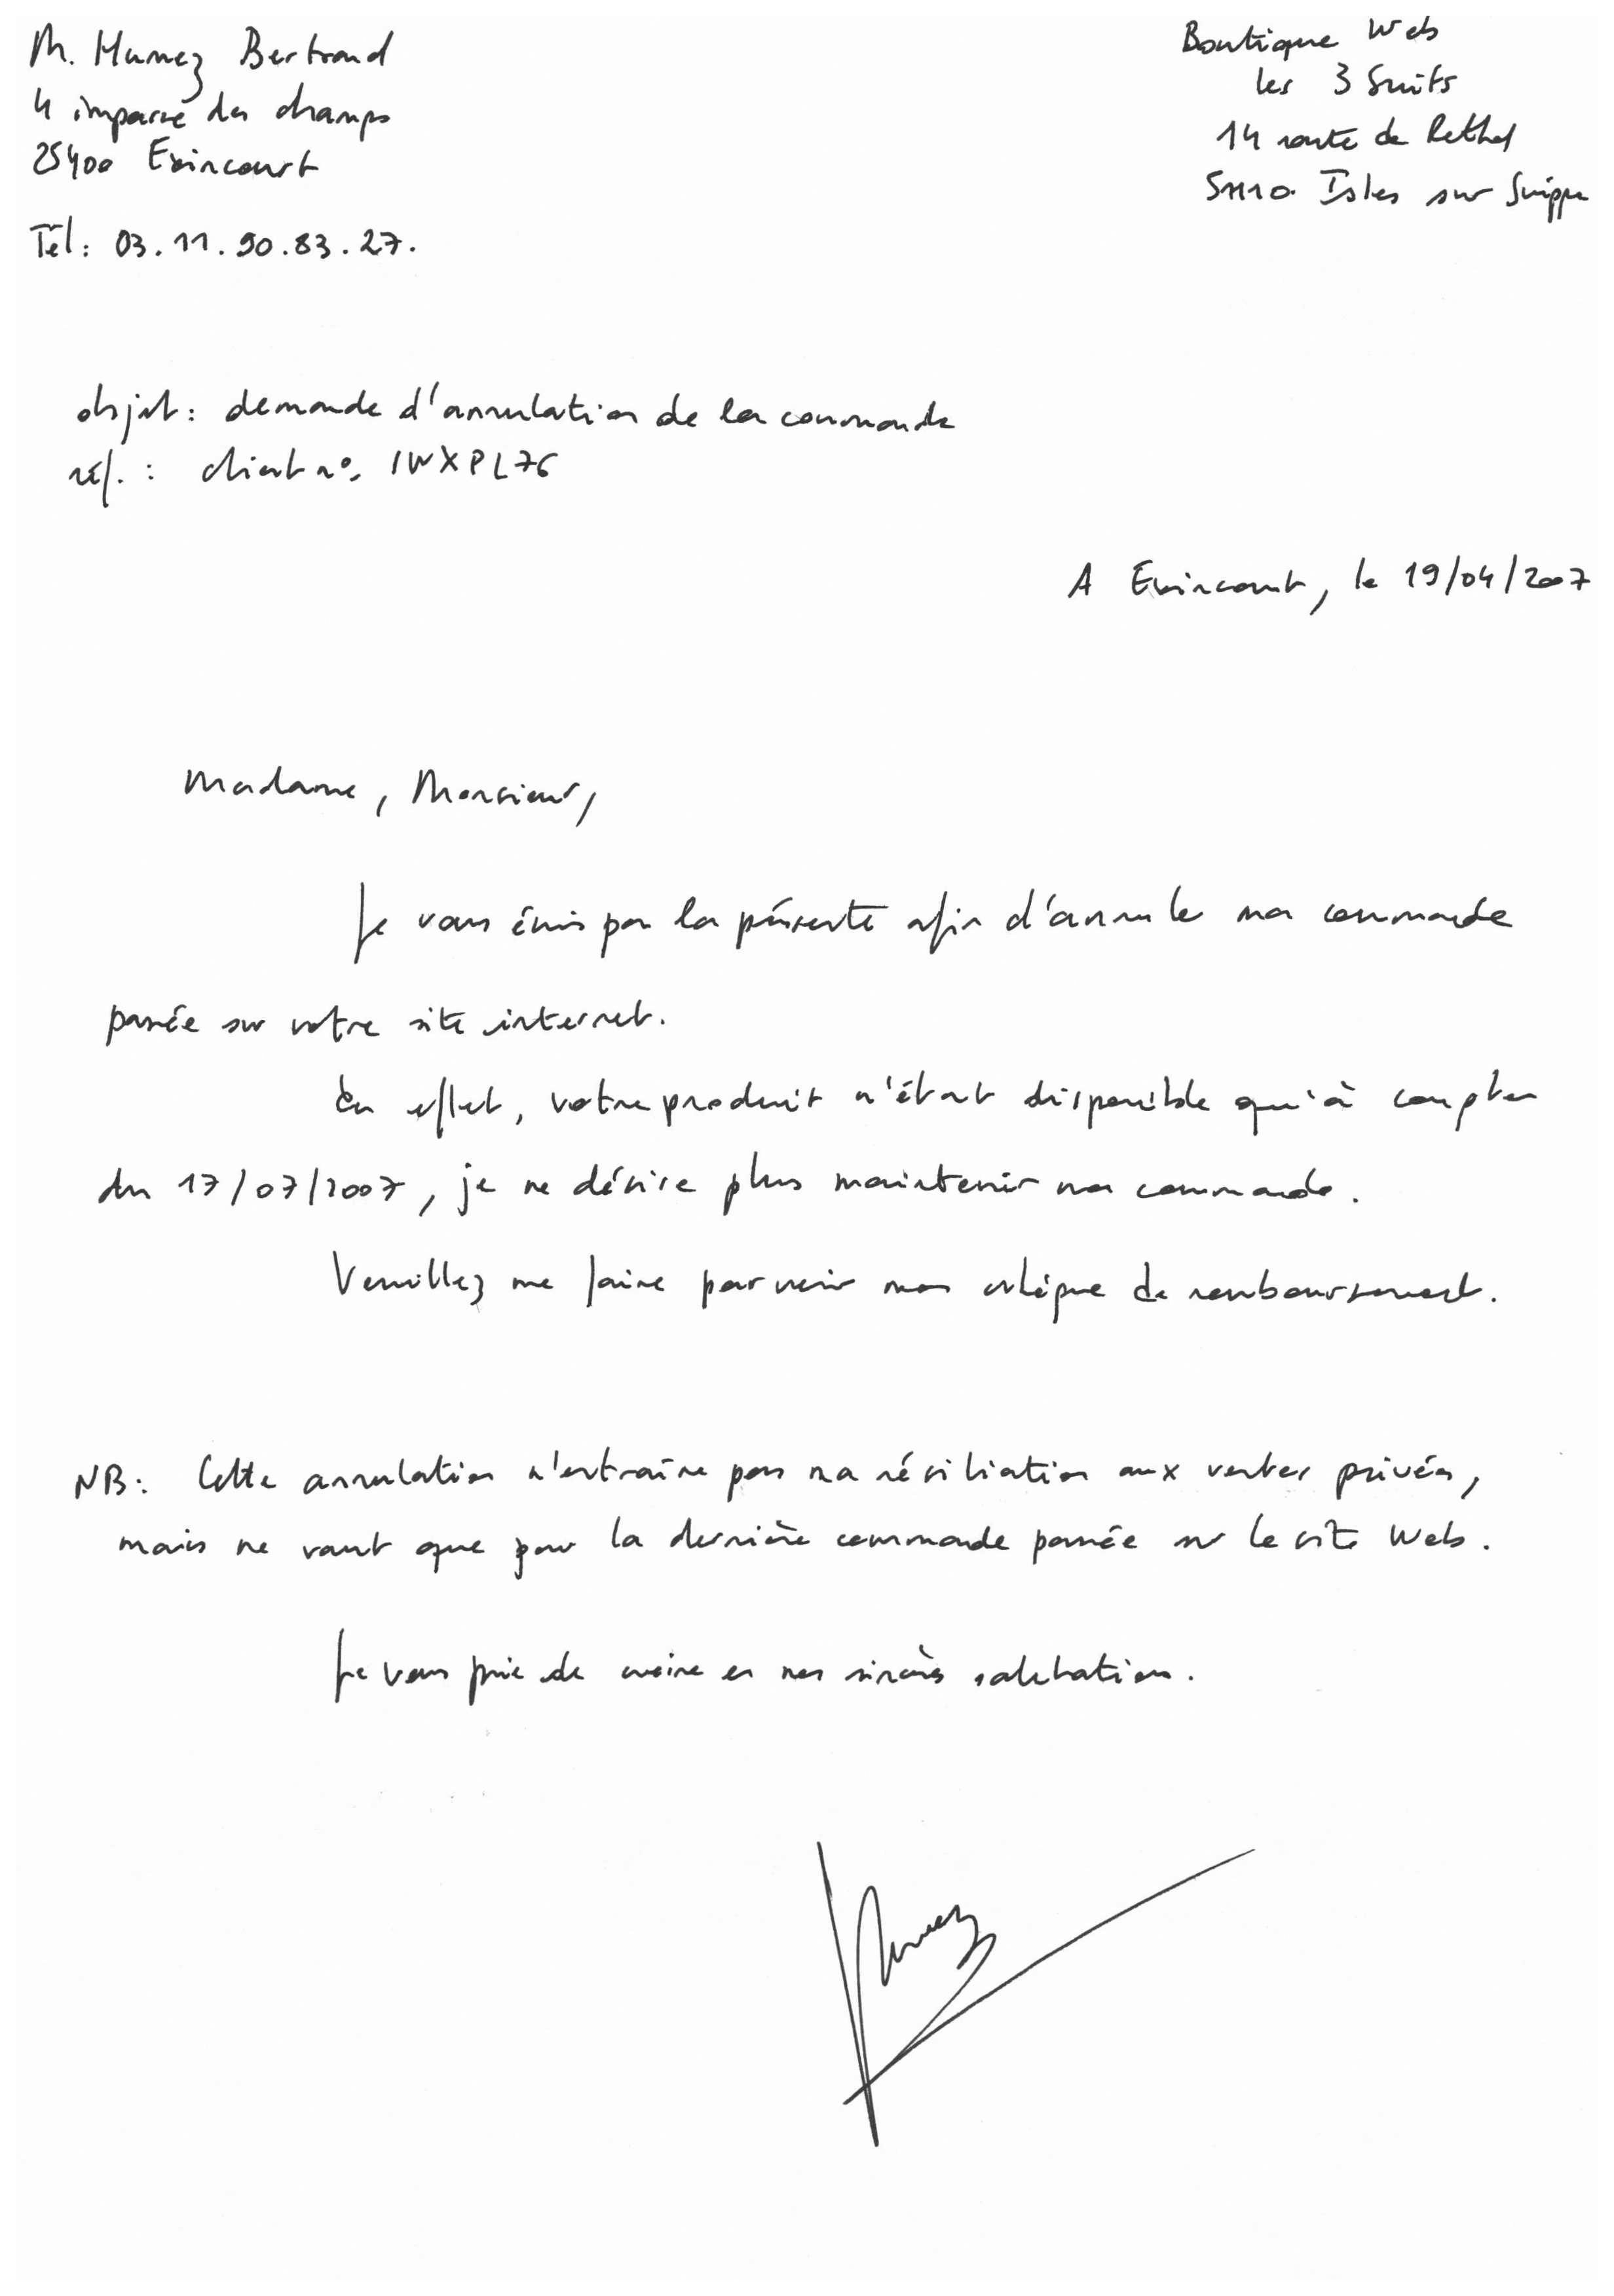 M. Humez Bertrand
4 impasse des champs
25400 Exincourt
Tél : 03.11.90.83.27.
Boutique Web
les 3 Suits
14 route de Rethel
51110 Isles sur Suippe
objet : demande d'annulation de la commande
réf. : client n°. IWXPL76
A Exincourt, le 19/04/2007
Madame, Monsieur,
Je vous écris par la présente afin d'annuler ma commande
passée sur votre site internet.
En effet, votre produit n'était disponible qu'à compter
du 17/07/2007, je ne désire plus maintenir ma commande.
Veuillez me faire parvenir mon chèque de remboursement.
NB : Cette annulation n'entraîne pas ma résiliation aux ventes privées,
mais ne vaut que pour la dernière commande passée sur le site Web.
Je vous prie de croire en mes sincères salutations.
Humez